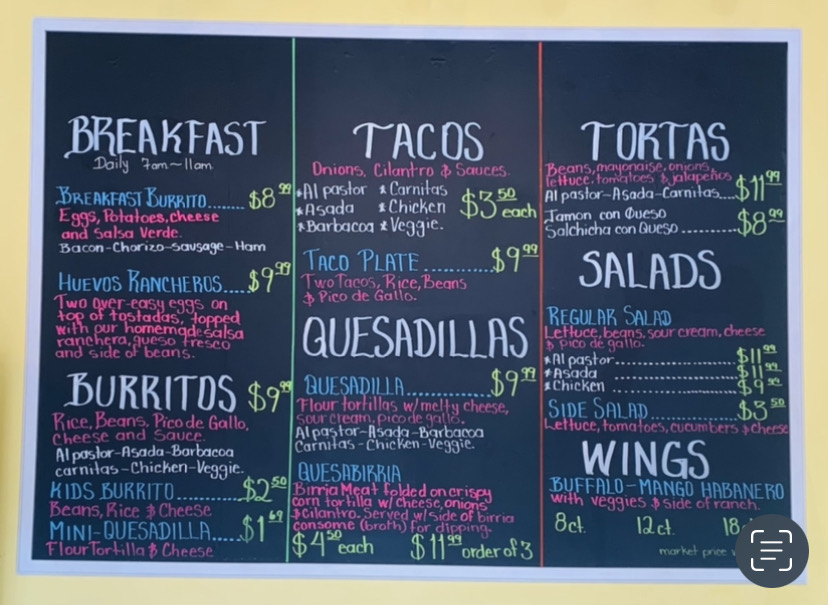 BREAKFAST
Daily 7am~11am
BREAKFAST BURRITO....... $8 99
Eggs, Potatoes, cheese
and Salsa Verde.
Bacon-Chorizo-Sausage-Ham
HUEVOS RANCHEROS..... $9 99
Two over-easy eggs on
top of tostadas, topped
with our homemade salsa
ranchera, queso fresco
and side of beans.
BURRITOS $9 99
Rice, Beans, Pico de Gallo,
Cheese and Sauce.
Al pastor-Asada-Barbacoa
carnitas-Chicken-Veggie.
KIDS BURRITO.......... $2 50
Beans, Rice & Cheese
MINI-QUESADILLA..... $1 69
Flour Tortilla & Cheese
TACOS
Onions, Cilantro & Sauces.
*Al pastor *Carnitas
*Asada *Chicken $3 50 each
*Barbacoa *Veggie.
TACO PLATE........... $9 99
Two Tacos, Rice, Beans
& Pico de Gallo.
QUESADILLAS
QUESADILLA............. $9 99
Flour tortillas w/melty cheese,
sour cream, pico de gallo.
Al pastor-Asada-Barbacoa
Carnitas-Chicken-Veggie.
QUESABIRRIA
Birria Meat folded on crispy
corn tortilla w/cheese, onions
&Cilantro. Served w/side of birria
consome (broth) for dipping.
$4 50 each $11 99 order of 3
TORTAS
Beans, mayonaise, onions,
lettuce, tomatoes & jalapeños
Al pastor-Asada-Carnitas.... $11 99
Jamon con Queso
Salchicha con Queso ........... $8 99
SALADS
REGULAR SALAD
Lettuce, beans, sour cream, cheese
& pico de gallo.
*Al pastor........................ $11 99
*Asada ........................ $11 99
*Chicken ........................ $9 99
SIDE SALAD................ $3 50
Lettuce, tomatoes, cucumbers & Cheese
WINGS
BUFFALO-MANGO HABANERO
with veggies & side of ranch.
8ct. 12ct. 18
market price